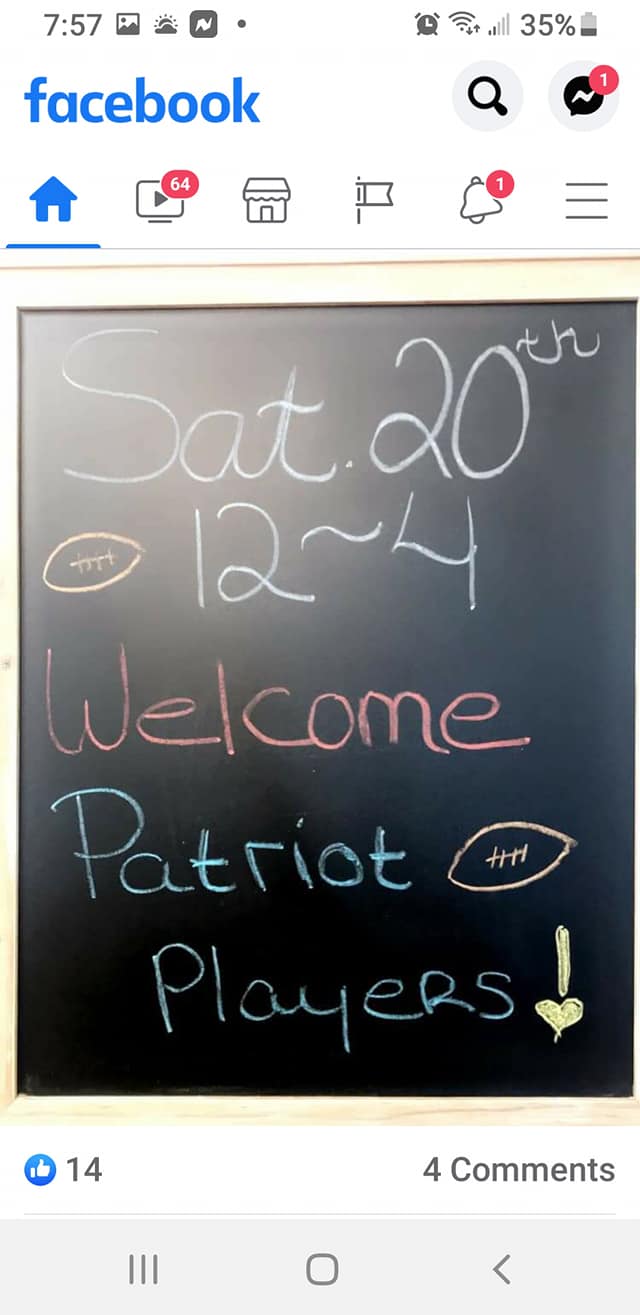 7:57 35%
facebook
1
64 1
Sat. 20th
12~4
Welcome
Patriot
Players!
14 4 Comments